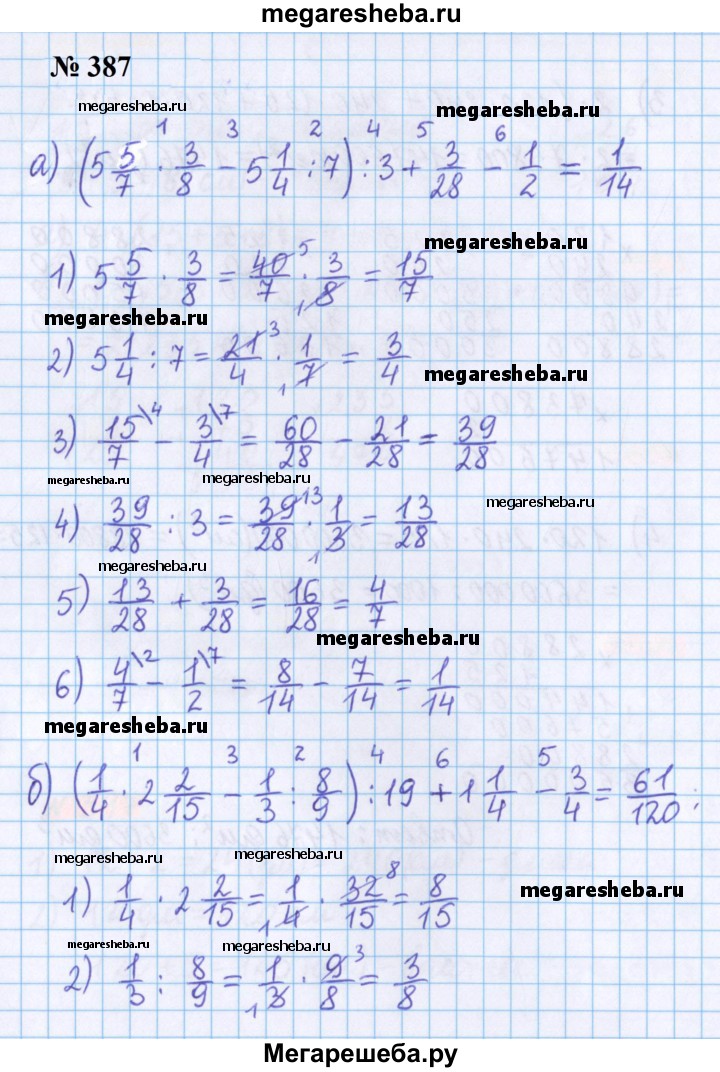 megaresheba.ru
№ 387
megaresheba.ru megaresheba.ru
1 3 2 4 5 6
а) (5 5/7 · 3/8 − 5 1/4 : 7) : 3 + 3/28 − 1/2 = 1/14
megaresheba.ru
1) 5 5/7 · 3/8 = 40/7 5 · 3/8 1 = 15/7
megaresheba.ru
2) 5 1/4 : 7 = 21/4 3 · 1/7 1 = 3/4
megaresheba.ru
3) 15/7 \4 − 3/4 \7 = 60/28 − 21/28 = 39/28
megaresheba.ru megaresheba.ru
4) 39/28 : 3 = 39/28 13 · 1/3 1 = 13/28
megaresheba.ru
megaresheba.ru
5) 13/28 + 3/28 = 16/28 = 4/7
megaresheba.ru
6) 4/7 \2 − 1/2 \7 = 8/14 − 7/14 = 1/14
megaresheba.ru
1 3 2 4 6 5
б) (1/4 · 2 2/15 − 1/3 : 8/9) : 19 + 1 1/4 − 3/4 = 61/120 ;
megaresheba.ru megaresheba.ru
1) 1/4 · 2 2/15 = 1/4 1 · 32/15 8 = 8/15
megaresheba.ru
megaresheba.ru megaresheba.ru
2) 1/3 : 8/9 = 1/3 1 · 9/8 3 = 3/8
Мегарешеба.ру